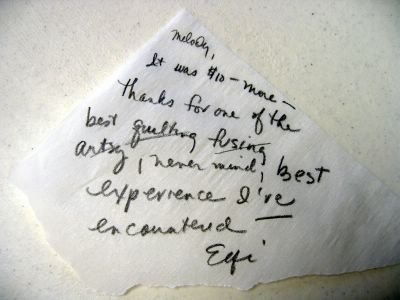 Melody,
It was $10 - more -
thanks for one of the
best quilting fusing
artsy, never mind, best
experience I've
encountered
Elfi